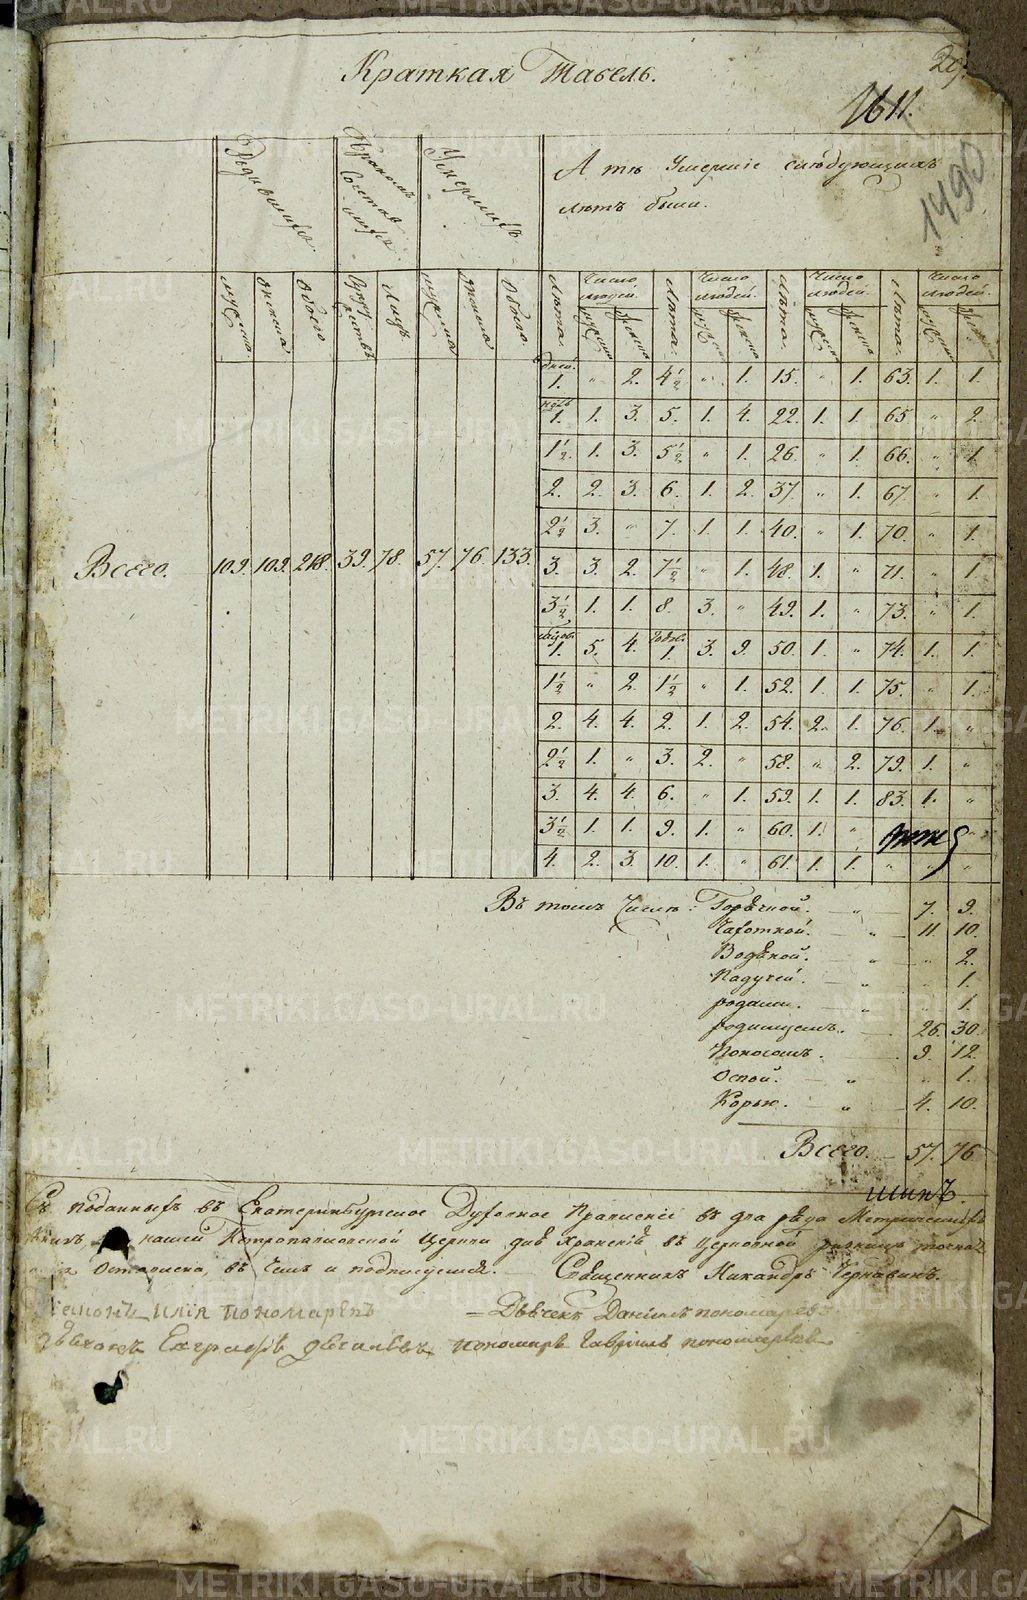 Краткая Табель.
29.
1611.
1490
Родившихся.
Бракосочетавшихся.
Умершихъ.
А тѣ Умершіе слѣдующихъ
лѣтъ были.
мужска. женска. Обоего. Супружествъ. Лицъ. мужска. женска. Обоего. Лѣта. Число людей. Лѣта. Число людей. Лѣта. Число людей. Лѣта. Число людей.
дней. 1. " 2. 4½ " 1. 15. " 1. 63. 1. 1.
1. 1. 3. 5. 1. 4. 22. 1. 1. 65 " 2.
1½. 1. 3. 5½ " 1. 26. " 1. 66. " 1.
2. 2. 3. 6. 1. 2. 37. " 1. 67. " 1.
2½ 3. " 7. 1. 1. 40. " 1. 70. " 1.
Всего. 109. 109. 218. 39. 78. 57. 76. 133. 3. 3. 2. 7½ " 1. 48. 1. " 71. " 1.
3½ 1. 1. 8. 3. " 49. 1. " 73. " 1.
1. 5. 4. 1. 3. 9. 50. 1. " 74. 1. 1.
1½ " 2. 1½ " 1. 52. 1. 1. 75. " 1.
2. 4. 4. 2. 1. 2. 54. 2. 1. 76. 1. "
2½ 1. " 3. 2. " 58. " 2. 79. 1. "
3. 4. 4. 6. " 1. 59. 1. 1. 83. 1. "
3½ 1. 1. 9. 1. " 60. 1. " "
4. 2. 3. 10. 1. " 61. 1. 1. " " "
Въ томъ Числѣ: Горячкой. " 7. 9.
Чахоткой. " 11. 10.
Водяной. " " 2.
Падучей. " " 1.
родами. " " 1.
родимцемъ. 26. 30.
Поносомъ. 9. 12.
Оспой. " " 1.
Корью. " 4. 10.
Всего. 57. 76
Съ поданныхъ въ Екатеринбургское Духовное Правленіе въ два ряда Метрическихъ
книгъ, нашей Петропавловской Церкви для храненія въ Церковной ризницѣ точная
Оставлена, въ Чемъ и подписуемся. Священникъ Никандръ Чернавинъ.
Илія пономаревъ = Дьячекъ Даніилъ пономаревъ.
пономарь Гавріилъ пономаревъ